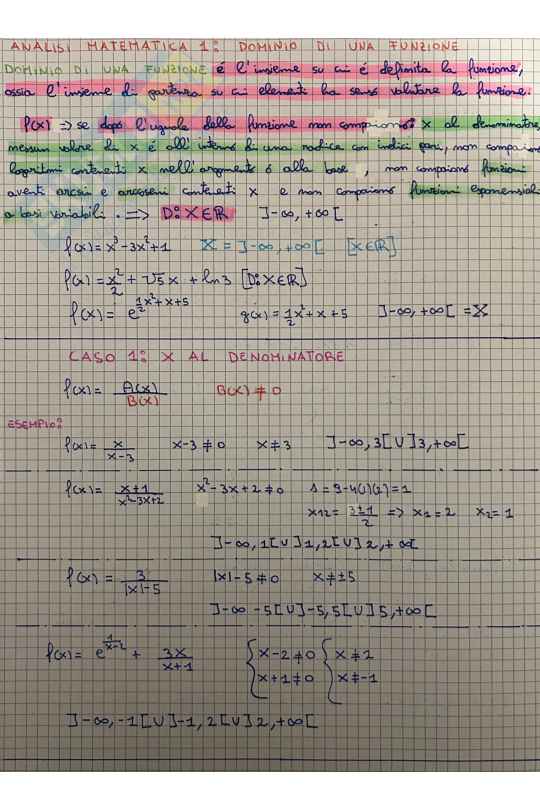 ANALISI MATEMATICA 1: DOMINIO DI UNA FUNZIONE
DOMINIO DI UNA FUNZIONE é l'insieme su cui é definita la funzione,
ossia l'insieme di partenza su cui elementi ha senso valutare la funzione.
f(x) => se dopo l'uguale della funzione non compaiono: x al denominatore,
nessun valore di x é all'interno di una radice con indici pari, non compaiono
logaritmi contenenti x nell'argomento o alla base, non compaiono funzioni
aventi arcsin e arcoseni contenenti x e non compaiono funzioni esponenziali
a basi variabili. => D: X∈ℝ ]-∞, +∞[
f(x) = x³-3x²+1 X = ]-∞, +∞[ [X∈ℝ]
f(x) = x²/2 + √5 x + ln3 [D: X∈ℝ]
f(x) = e^(1/2 x²+x+5) g(x) = 1/2 x² + x + 5 ]-∞, +∞[ = X
CASO 1: X AL DENOMINATORE
f(x) = A(x)/B(x) B(x) ≠ 0
ESEMPIO:
f(x) = x/(x-3) x-3 ≠ 0 x ≠ 3 ]-∞, 3[ U ]3, +∞[
f(x) = (x+1)/(x²-3x+2) x²-3x+2 ≠ 0 Δ = 9-4(1)(2) = 1
x12 = (3±1)/2 => x1 = 2 x2 = 1
]-∞, 1[ U ]1, 2[ U ]2, +∞[
f(x) = 3/(|x|-5) |x|-5 ≠ 0 x ≠ ±5
]-∞ -5[ U ]-5, 5[ U ]5, +∞[
f(x) = e^(1/(x-2)) + 3x/(x+1) { x-2 ≠ 0 { x ≠ 2
x+1 ≠ 0 x ≠ -1
]-∞, -1[ U ]-1, 2[ U ]2, +∞[